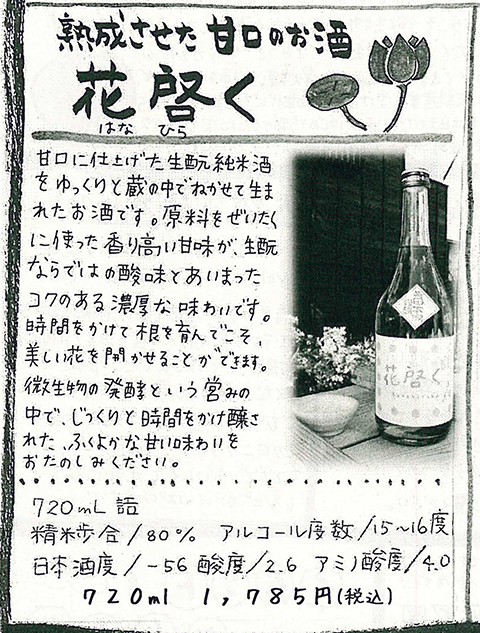 熟成させた甘口のお酒
花啓く
はな ひら
甘口に仕上げた生酛純米酒
をゆっくりと蔵の中でねかせて生ま
れたお酒です。原料をぜいたく
に使った香り高い甘味が、生酛
ならではの酸味とあいまった
コクのある濃厚な味わいです。
時間をかけて根を育んでこそ、
美しい花を開かせることができます。
微生物の発酵という営みの
中で、じっくりと時間をかけ醸さ
れた、ふくよかな甘い味わいを
おたのしみください。
花啓く
720mL 詰
精米歩合/80% アルコール度数/15~16度
日本酒度/-56 酸度/2.6 アミノ酸度/4.0
720ml 1,785円(税込)